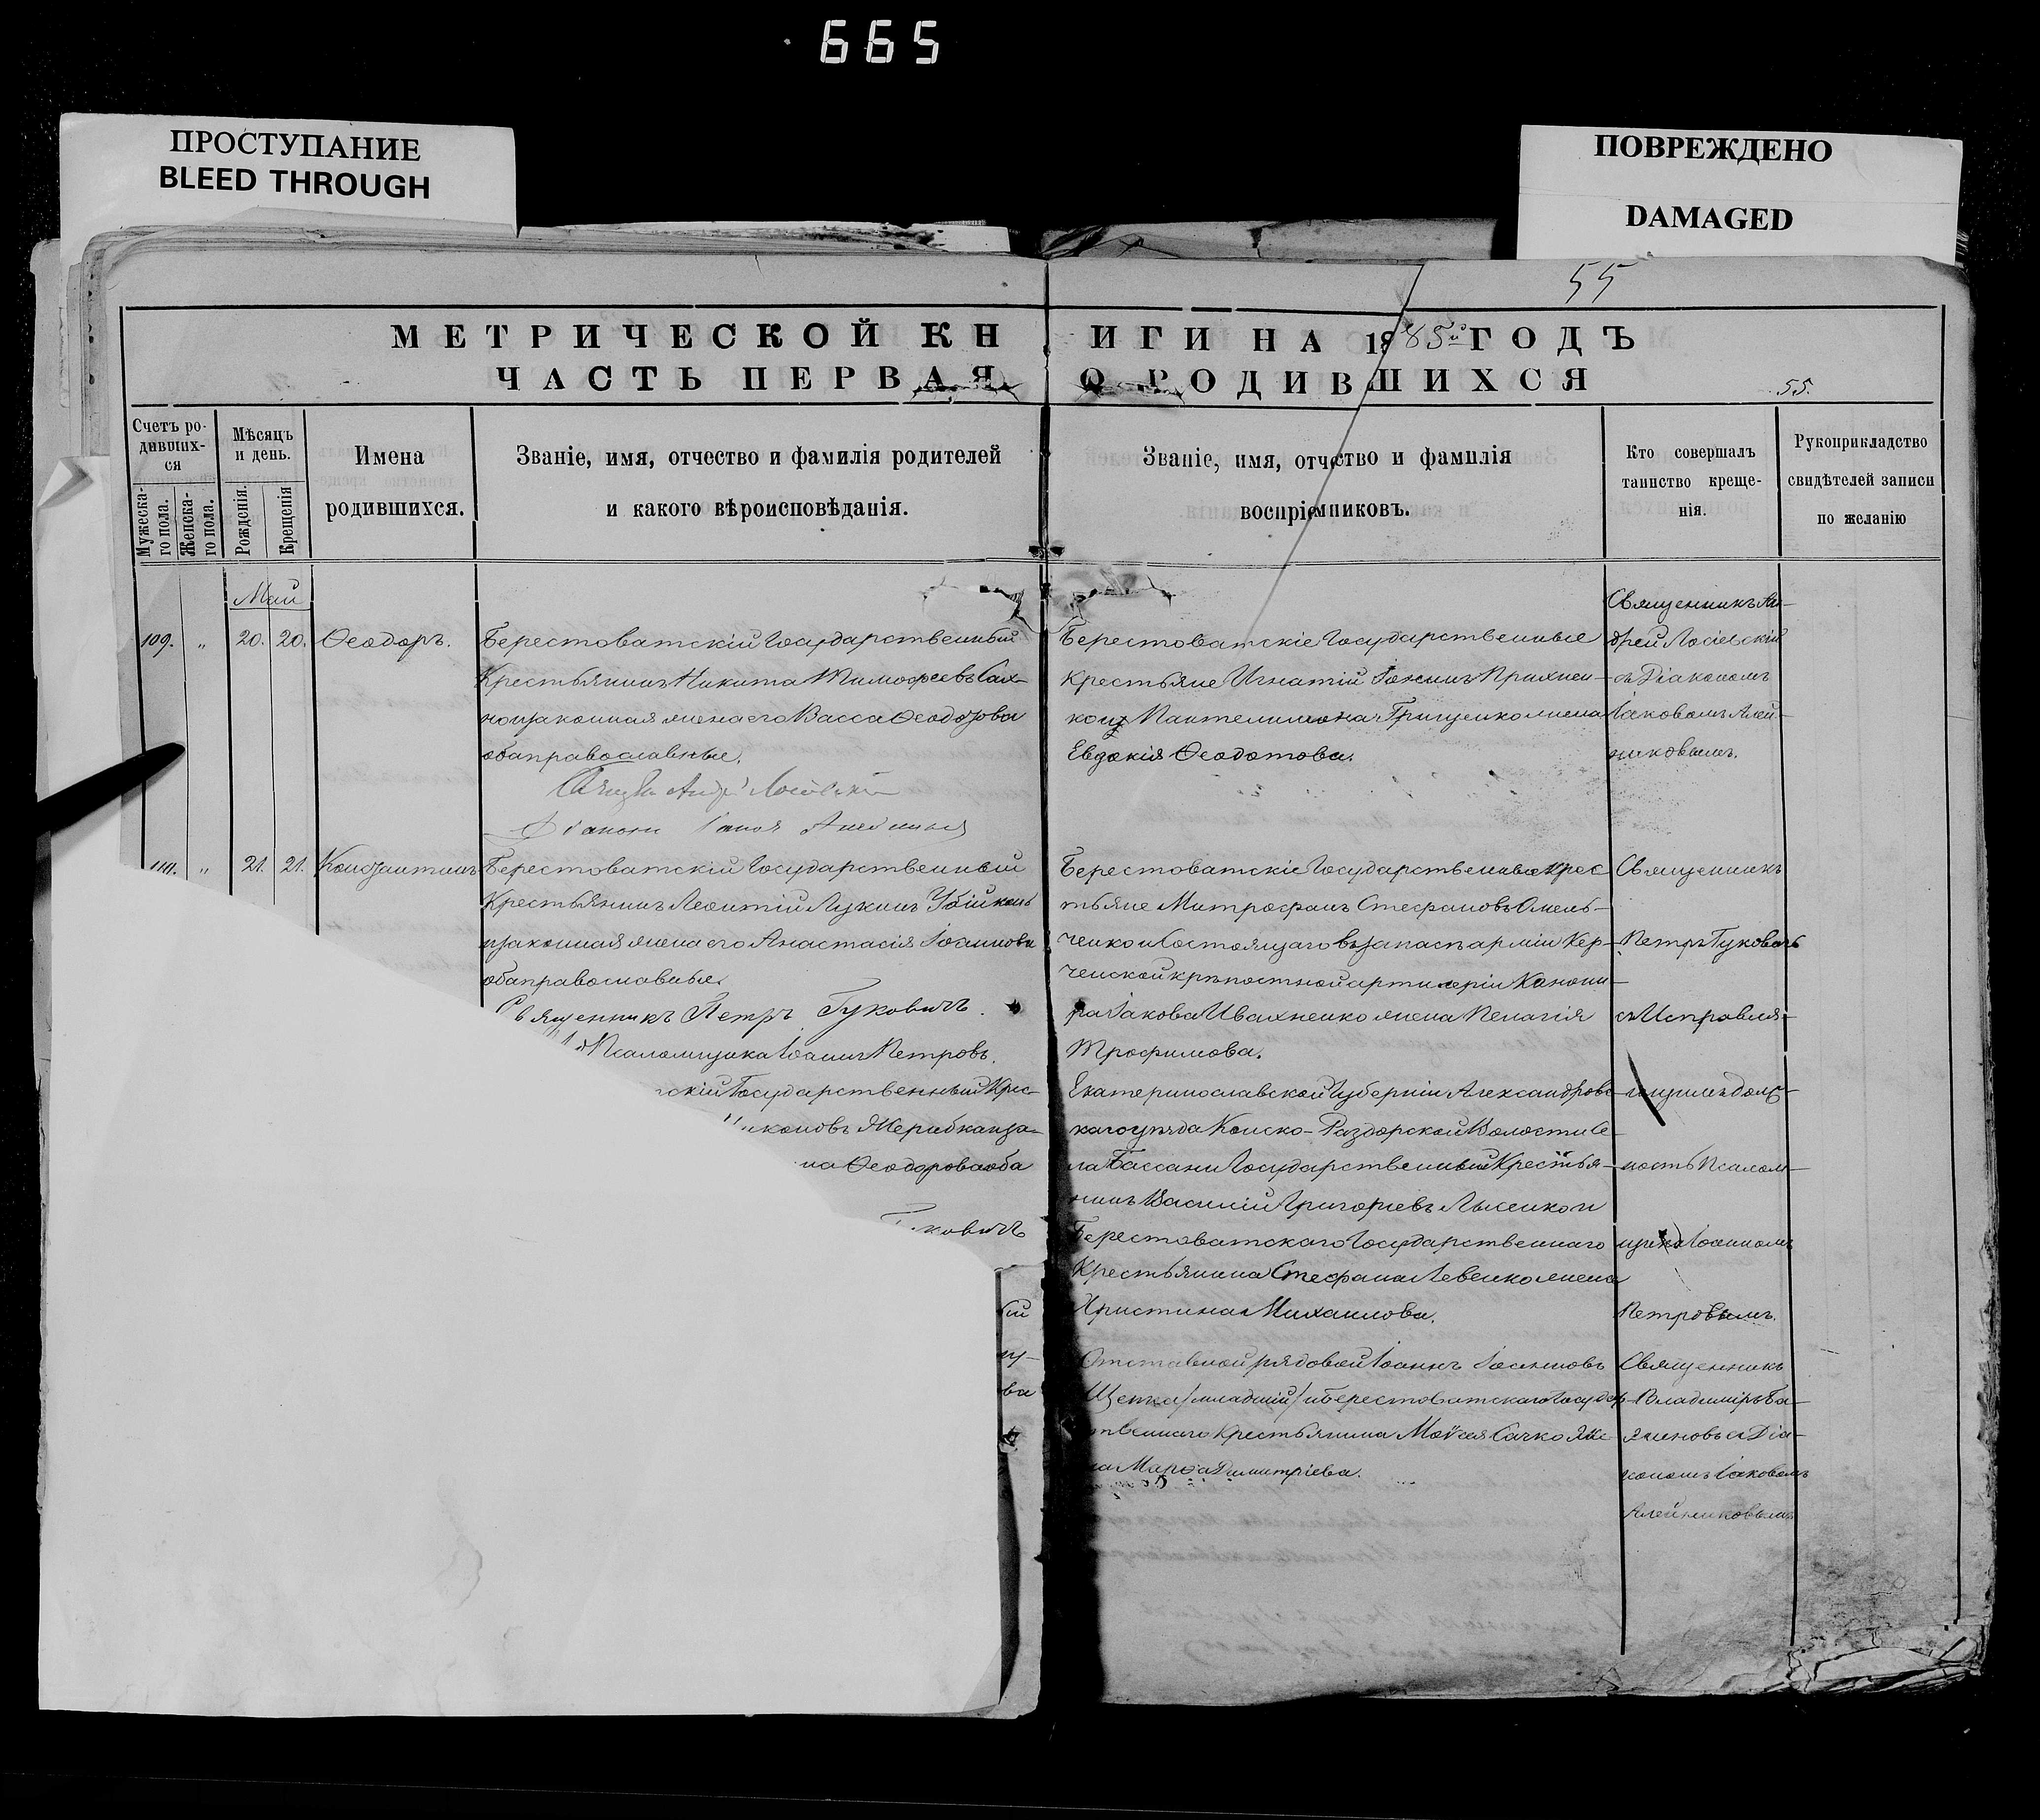 665
ПРОСТУПАНИЕ
BLEED THROUGH
ПОВРЕЖДЕНО
DAMAGED
55
МЕТРИЧЕСКОЙ КНИГИ НА 1885й ГОДЪ
ЧАСТЬ ПЕРВАЯ О РОДИВШИХСЯ
55.
Счетъ ро-
дивших-
ся
Мужеска-
го пола.
Женска-
го пола.
Мѣсяцъ
и день.
Рожденія.
Крещенія
Имена
родившихся.
Званіе, имя, отчество и фамилія родителей
и какого вѣроисповѣданія.
Званіе, имя, отчество и фамилія
воспріемниковъ.
Кто совершалъ
таинство креще-
нія.
Рукоприкладство
свидѣтелей записи
по желанію
Май
109. „ 20. 20. Ѳеодоръ.
Берестоватскій Государственный
Крестьянинъ Никита Тимоѳеевъ Сах-
но и законная жена его Васса Ѳеодорова
оба православные.
Андрей Лосіевскій
Діаконъ
Берестоватскіе Государственные
Крестьяне Игнатій Прихнен-
ко и Пантелимона Грищенко жена
Евдокія Ѳеодотова.
Священникъ Ан-
дрей Лосіевскій
съ Діакономъ
Іаковомъ Алей-
никовымъ.
110. „ 21. 21. Константинъ
Берестоватскій Государственный
Крестьянинъ Леонтій Лукинъ
и законная жена его Анастасія Іоаннова
оба православные.
Священникъ Петръ Гуковичъ.
Псаломщика Іоаннъ Петровъ.
Берестоватскіе Государственные Крес
тьяне Митрофанъ Стефановъ Омель-
ченко и состоящаго въ запасъ арміи Кер-
ченской крѣпостной артилеріи Канони-
ра Іакова Ивахненко жена Пелагія
Трофимова.
Священникъ
Петръ Гуковичъ
съ Исправля-
ющимъ долж-
ность Псалом-
щика Іоанномъ
Петровымъ.
скій Государственный Крес-
на Ѳеодорова оба
ковичъ
Екатеринославской Губерніи Александровс-
каго уѣзда Конско-Раздорской Волости Се-
ла Бассани Государственный Крестья-
нинъ Василій Григорьевъ Лысенко и
Берестоватскаго Государственнаго
Крестьянина Стефана Левенко жена
Христина Михаилова.
ый
ву-
ва
Отставной рядовой Іоаннъ Іоанновъ
Щепка /младшій/ и Берестоватскаго Государ-
ственнаго Крестьянина Моѵсея Сачко же-
на Марѳа Димитріева.
Священникъ
Владиміръ Ба-
женовъ съ Діа-
кономъ Іаковомъ
Алейниковымъ